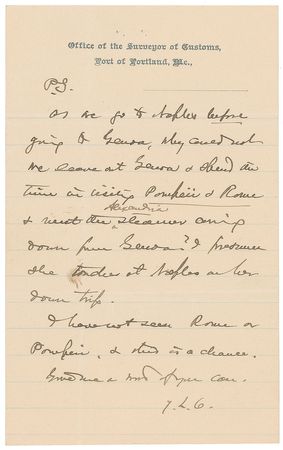 Office of the Surveyor of Customs,
Port of Portland, Me.,
P.S.
As we go to Naples before
going to Genoa, why could not
we leave at Genoa & spend the
time in visiting Pompeii & Rome
Alexandria
& meet the steamer coming
down from Genoa? I presume
she touches at Naples on her
down trip.
I have not seen Rome or
Pompeii, & this is a chance.
Give me a word if you can.
J.L.C.